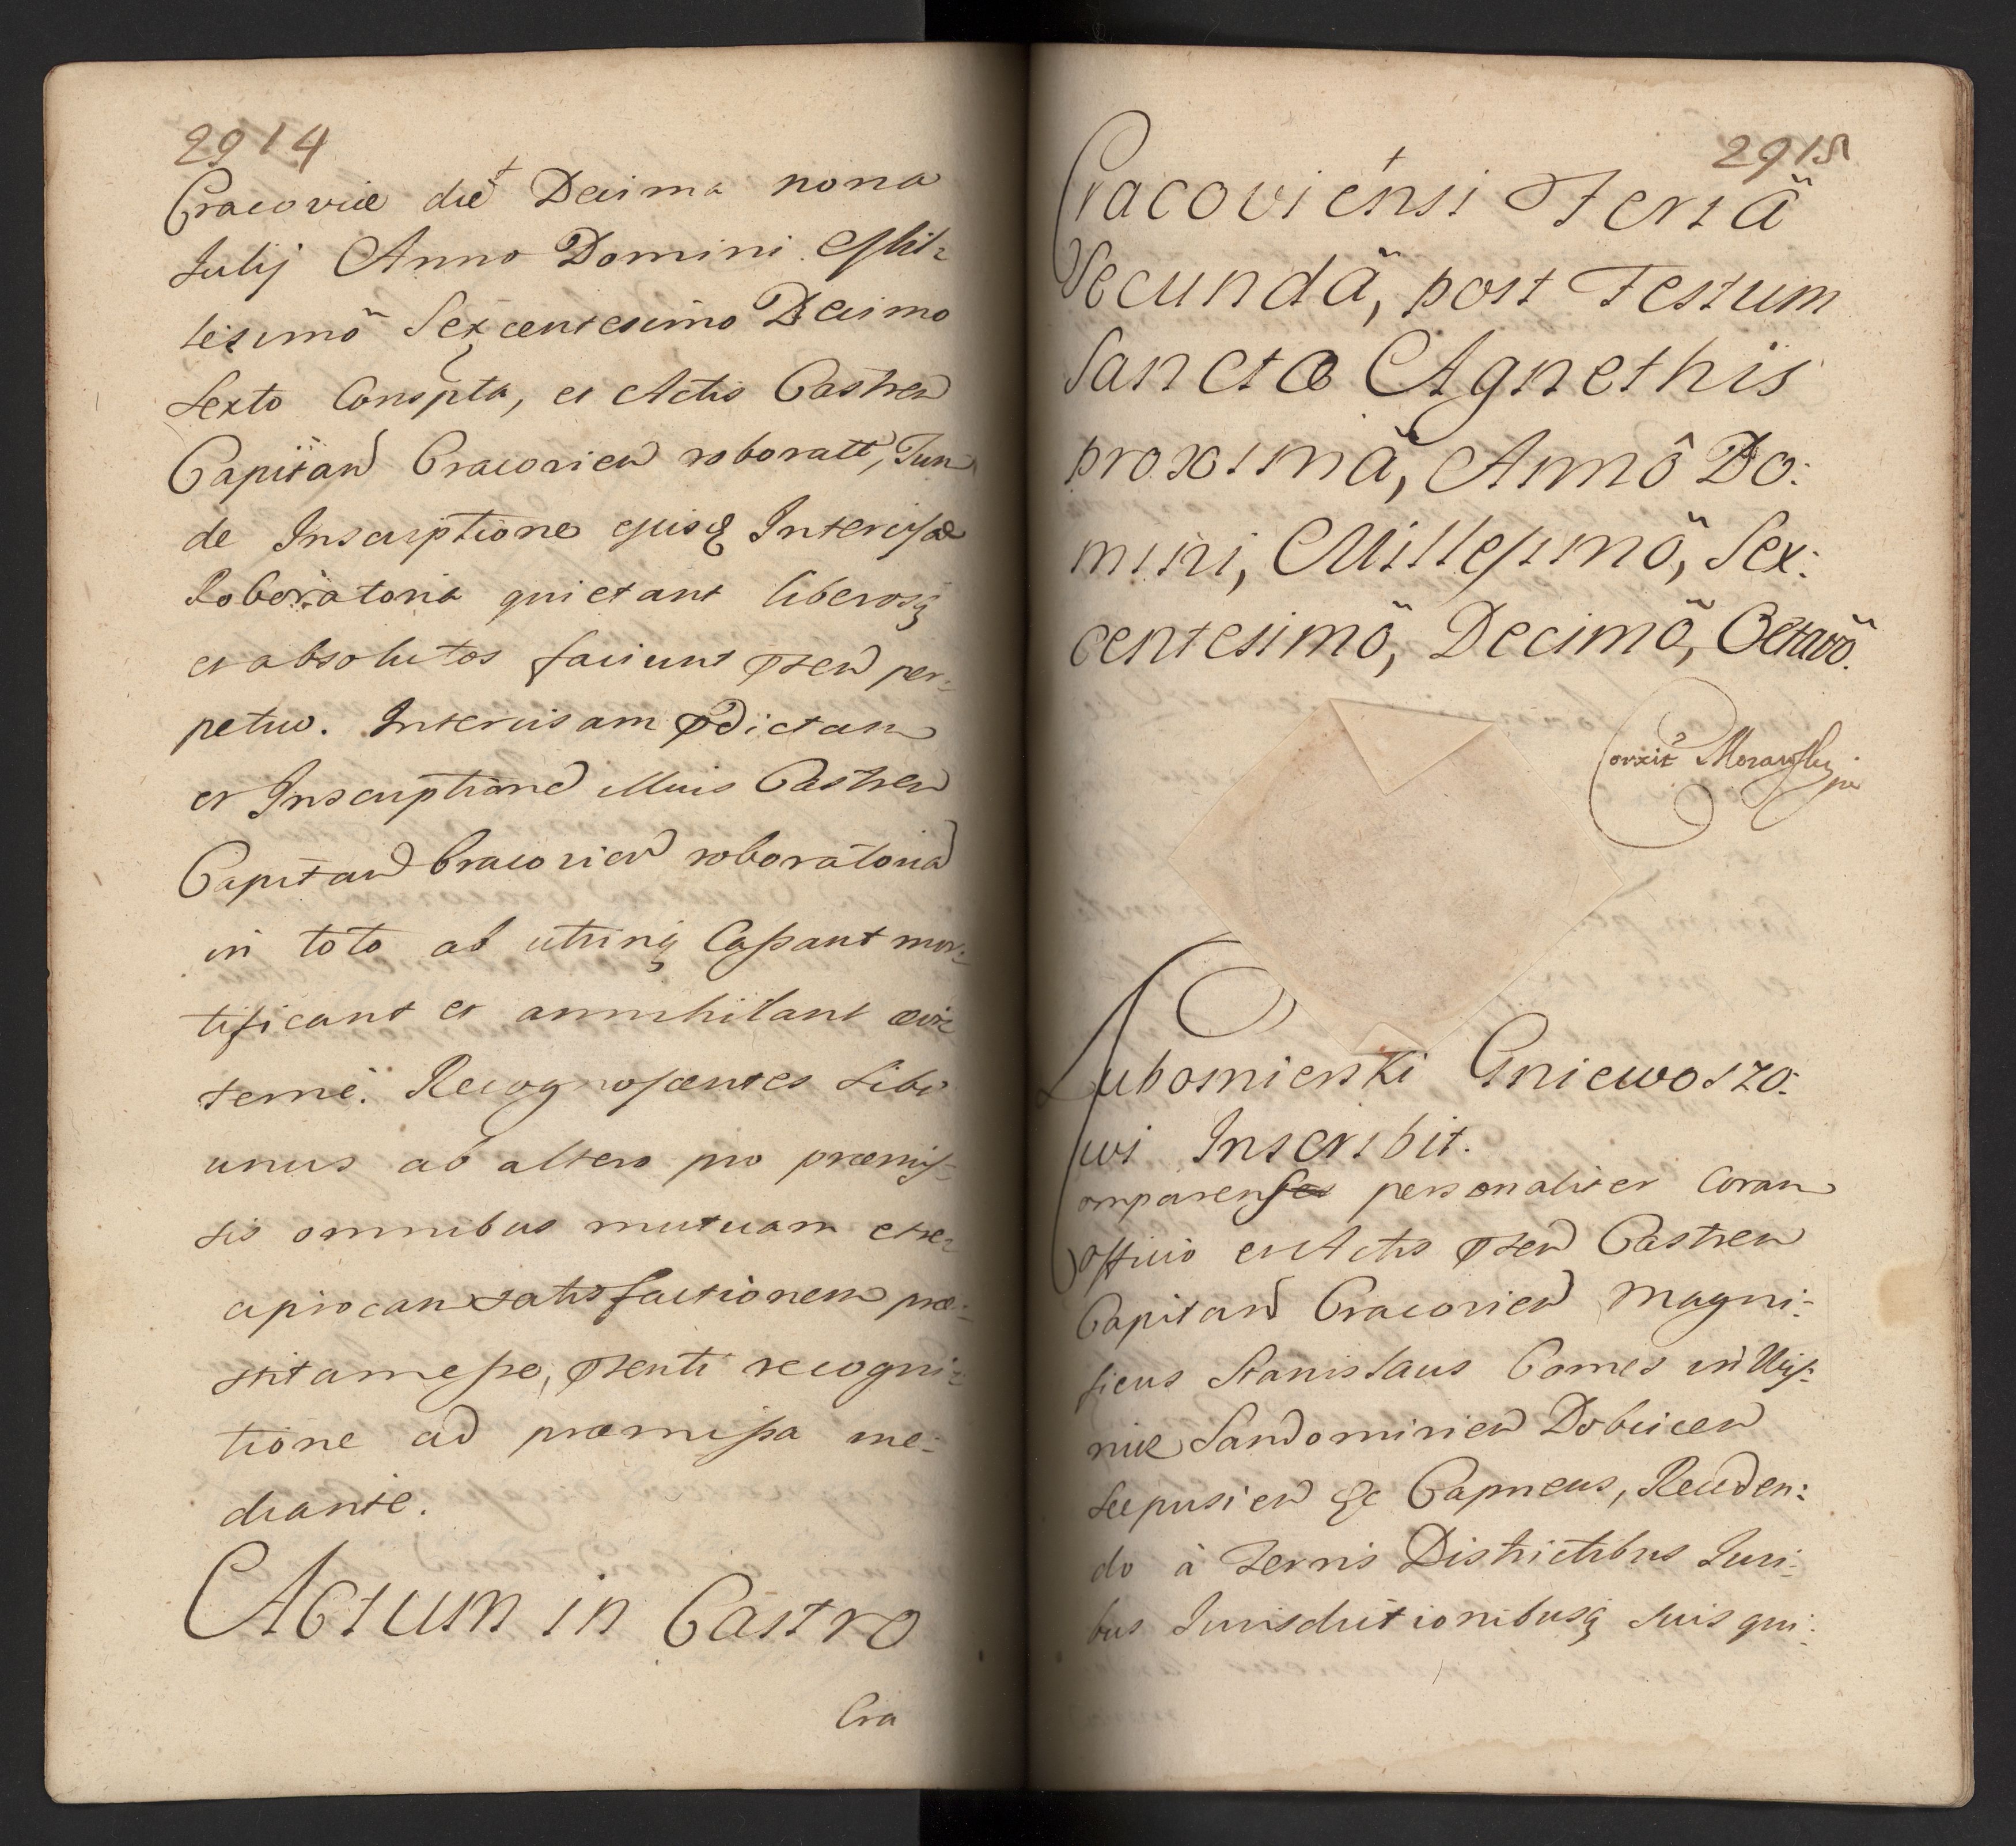 2914
Cracoviæ die Decima nona
Julij Anno Domini Mil-
lesimô Sexcentesimo Decimo
Sexto Conspta, et Actis Castren
Capitan Cracovien roboratt, Tun
de Inscriptione ejusq Intercisæ
Roboratoria quietant liberosq
et absolutos faciunt pten per-
petuo. Intercisam pdictam
et Inscriptione Castren
Capitan Cracovien roboratoria
in toto ab utrinq Cassant mor-
tificant et annihilant
Recognoscentes sibi
unus ab altero pro præmis-
sis omnibus mutuam et re-
ciprocam satisfactionem præ-
stitam esse, ptenti recogni-
tione ad præmissa me-
diante.
Actum in Castro
Cra
2915
Cracoviensi Feriâ
Secundâ, post Festum
Sanctæ Agnethis
proximâ, Annô Do:
mini, Millesimô, Sex:
centesimô, Decimô, Octavô.
Corxit Morawsky
Lubomierski Gniewoszo:
wi Inscribit.
Comparens personaliter Coram
Officio et Actis pten Castren
Capitan Cracovien Magni:
ficus Stanislaus Comes in Wis:
nicz Sandomirien Dobcicen
Scepusien &c Capneus, Recéden:
do à Terris Districtibus Juri:
bus Jurisdictionibusq suis qui: